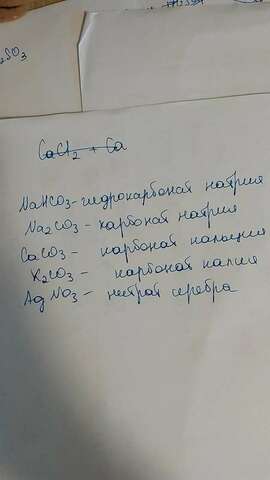 SO3
CaCl2 + Ca
NaHCO3 - гидрокарбонат натрия
Na2CO3 - карбонат натрия
CaCO3 - карбонат кальция
K2CO3 - карбонат калия
AgNO3 - нитрат серебра